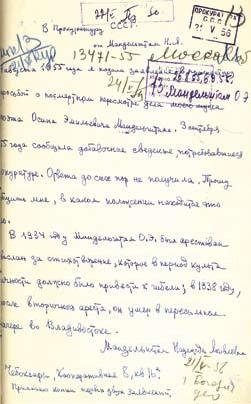 В Прокуратуру
СССР.
от Мандельштам Н.Я.
ПРОКУРАТ
С С С Р
V 56
13471-55 Москва
августа 1955 года я подала заявление
Мандельштам О.Э
просьбой о посмертном пересмотре дела моего мужа
поэта Осипа Эмильевича Мандельштама. 3 октября
5 года сообщила добавочные сведения, потребовавшиеся
прокуратуре. Ответа до сих пор не получила. Прошу
сообщить мне, в каком положении находится это
В 1934 году Мандельштам О.Э. был арестован
сослан за стихотворение, которое в период культа
личности должно было привести к гибели; в 1938 году,
после вторичного ареста, он умер в пересыльном
лагере во Владивостоке.
Мандельштам Надежда Яковлевна
Чебоксары, Кооперативная 8, кв 16.
Приложены копии первых двух заявлений.